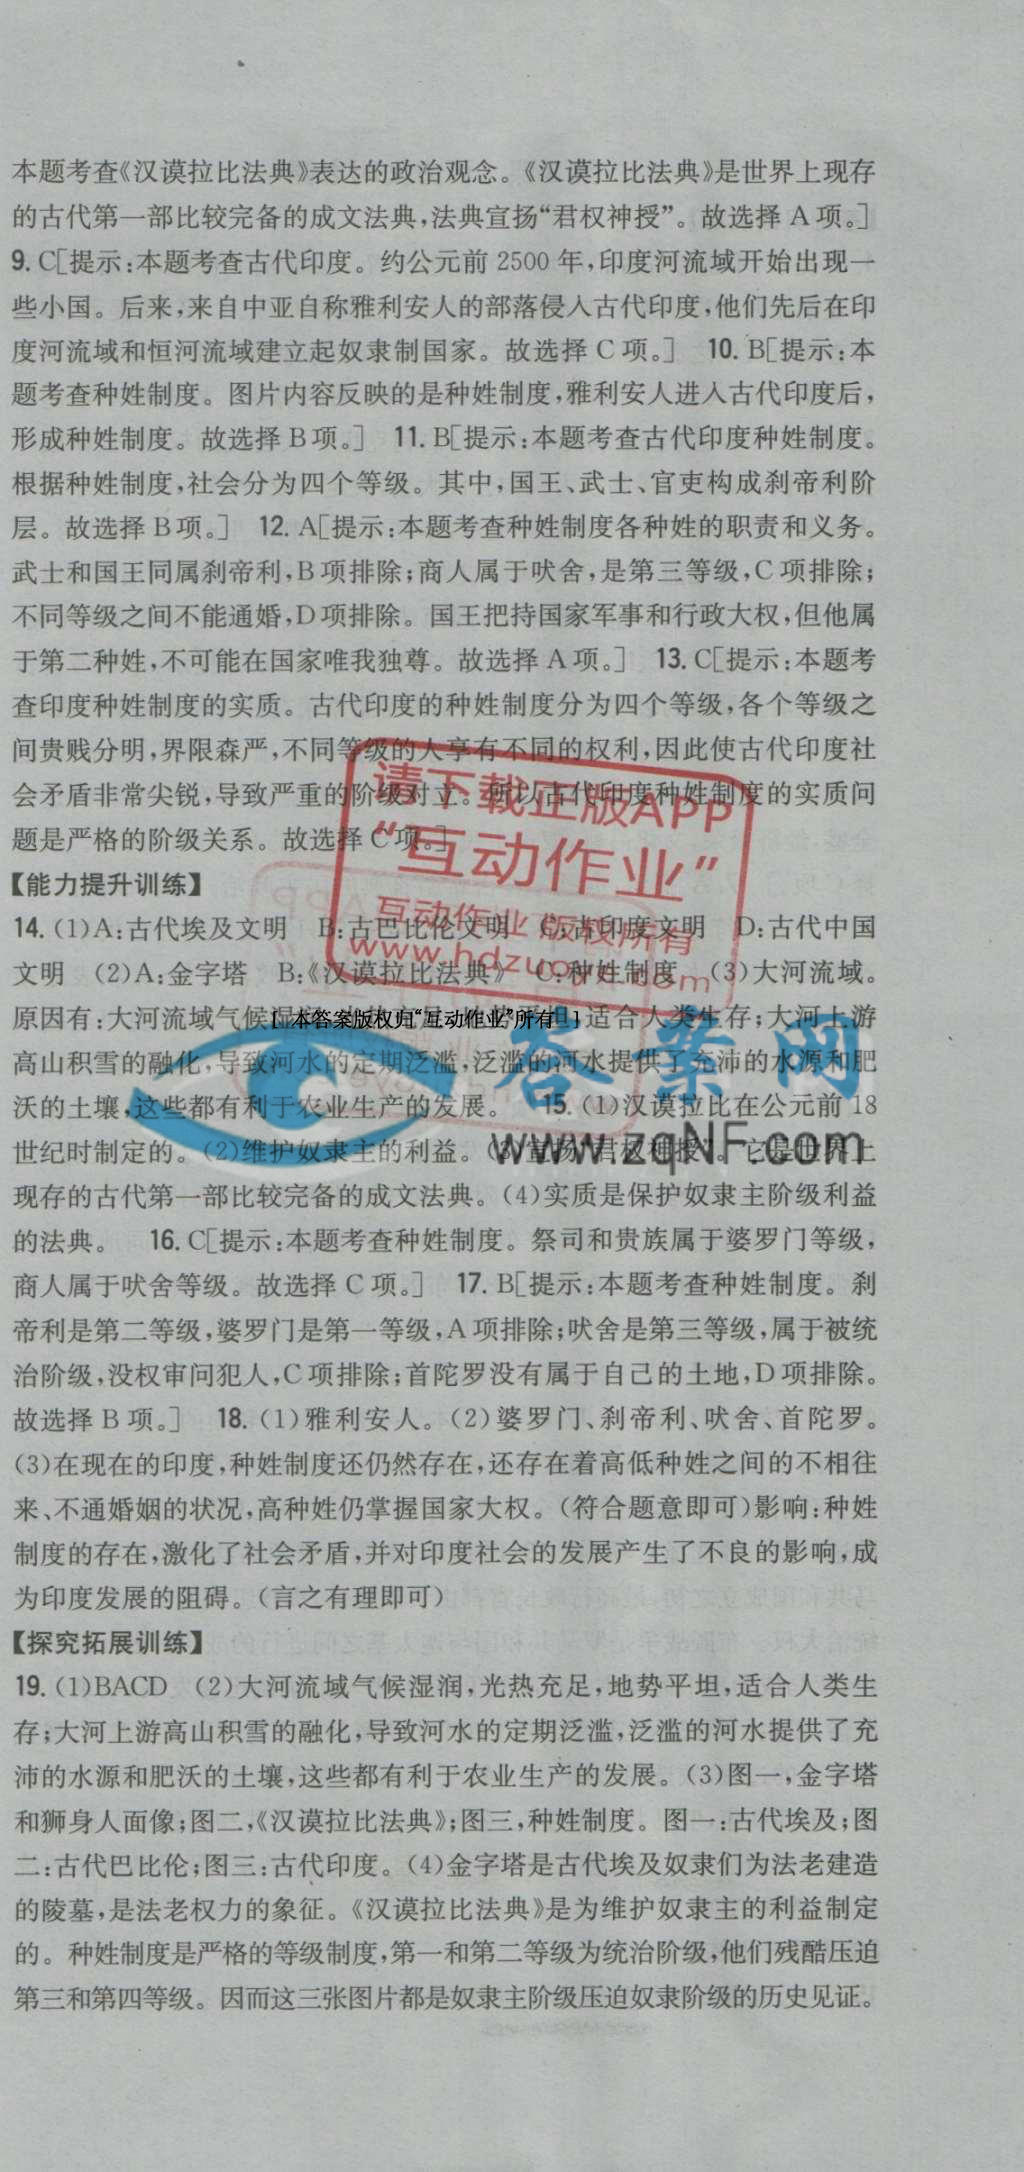 本题考查《汉谟拉比法典》表达的政治观念。《汉谟拉比法典》是世界上现存
的古代第一部比较完备的成文法典,法典宣扬“君权神授”。故选择 A 项。]
9. C[提示:本题考查古代印度。约公元前 2500 年,印度河流域开始出现一
些小国。后来,来自中亚自称雅利安人的部落侵入古代印度,他们先后在印
度河流域和恒河流域建立起奴隶制国家。故选择 C 项。] 10. B[提示:本
题考查种姓制度。图片内容反映的是种姓制度,雅利安人进入古代印度后,
形成种姓制度。故选择 B 项。] 11. B[提示:本题考查古代印度种姓制度。
根据种姓制度,社会分为四个等级。其中,国王、武士、官吏构成刹帝利阶
层。故选择 B 项。] 12. A[提示:本题考查种姓制度各种姓的职责和义务。
武士和国王同属刹帝利,B 项排除;商人属于吠舍,是第三等级,C 项排除;
不同等级之间不能通婚,D 项排除。国王把持国家军事和行政大权,但他属
于第二种姓,不可能在国家唯我独尊。故选择 A 项。] 13. C[提示:本题考
查印度种姓制度的实质。古代印度的种姓制度分为四个等级,各个等级之
间贵贱分明,界限森严,不同等级的人享有不同的权利,因此使古代印度社
会矛盾非常尖锐,导致严重的阶级对立。所以古代印度种姓制度的实质问
题是严格的阶级关系。故选择 C 项。]
请下载正版APP
“互动作业”
互动作业 版权所有
www.hdzuoye.com
【能力提升训练】
14. (1)A:古代埃及文明 B:古巴比伦文明 C:古印度文明 D:古代中国
文明 (2)A:金字塔 B:《汉谟拉比法典》 C:种姓制度 (3)大河流域。
原因有:大河流域气候湿润,地势平坦,适合人类生存;大河上游
[ 本答案版权归“互动作业”所有 ]
高山积雪的融化,导致河水的定期泛滥,泛滥的河水提供了充沛的水源和肥
答案网
www.zqNF.com
沃的土壤,这些都有利于农业生产的发展。 15. (1)汉谟拉比在公元前 18
世纪时制定的。(2)维护奴隶主的利益。(3)宣扬“君权神授”。它是世界上
现存的古代第一部比较完备的成文法典。(4)实质是保护奴隶主阶级利益
的法典。 16. C[提示:本题考查种姓制度。祭司和贵族属于婆罗门等级,
商人属于吠舍等级。故选择 C 项。] 17. B[提示:本题考查种姓制度。刹
帝利是第二等级,婆罗门是第一等级,A 项排除;吠舍是第三等级,属于被统
治阶级,没权审问犯人,C 项排除;首陀罗没有属于自己的土地,D 项排除。
故选择 B 项。] 18. (1)雅利安人。(2)婆罗门、刹帝利、吠舍、首陀罗。
(3)在现在的印度,种姓制度还仍然存在,还存在着高低种姓之间的不相往
来、不通婚姻的状况,高种姓仍掌握国家大权。(符合题意即可)影响:种姓
制度的存在,激化了社会矛盾,并对印度社会的发展产生了不良的影响,成
为印度发展的阻碍。(言之有理即可)
【探究拓展训练】
19. (1)BACD (2)大河流域气候湿润,光热充足,地势平坦,适合人类生
存;大河上游高山积雪的融化,导致河水的定期泛滥,泛滥的河水提供了充
沛的水源和肥沃的土壤,这些都有利于农业生产的发展。(3)图一,金字塔
和狮身人面像;图二,《汉谟拉比法典》;图三,种姓制度。图一:古代埃及;图
二:古代巴比伦;图三:古代印度。(4)金字塔是古代埃及奴隶们为法老建造
的陵墓,是法老权力的象征。《汉谟拉比法典》是为维护奴隶主的利益制定
的。种姓制度是严格的等级制度,第一和第二等级为统治阶级,他们残酷压迫
第三和第四等级。因而这三张图片都是奴隶主阶级压迫奴隶阶级的历史见证。